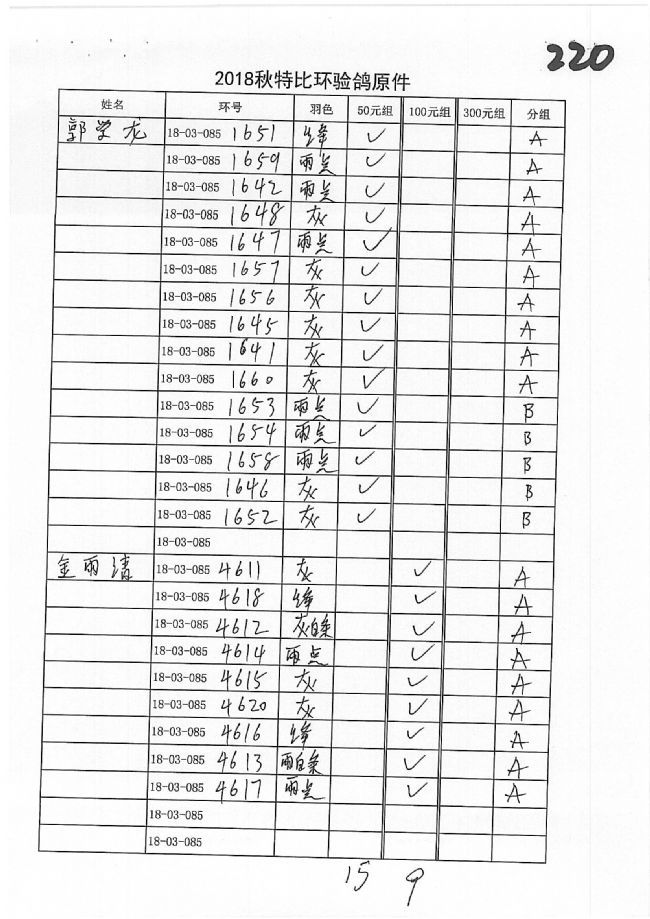 220
2018秋特比环验鸽原件
姓名 环号 羽色 50元组 100元组 300元组 分组
郭学龙 18-03-085 1651 绛 ✓ A
18-03-085 1659 雨点 ✓ A
18-03-085 1642 雨点 ✓ A
18-03-085 1648 灰 ✓ A
18-03-085 1647 雨点 ✓ A
18-03-085 1657 灰 ✓ A
18-03-085 1656 灰 ✓ A
18-03-085 1645 灰 ✓ A
18-03-085 1641 灰 ✓ A
18-03-085 1660 灰 ✓ A
18-03-085 1653 雨点 ✓ B
18-03-085 1654 雨点 ✓ B
18-03-085 1658 雨点 ✓ B
18-03-085 1646 灰 ✓ B
18-03-085 1652 灰 ✓ B
18-03-085
金雨清 18-03-085 4611 灰 ✓ A
18-03-085 4618 绛 ✓ A
18-03-085 4612 灰白条 ✓ A
18-03-085 4614 雨点 ✓ A
18-03-085 4615 灰 ✓ A
18-03-085 4620 灰 ✓ A
18-03-085 4616 绛 ✓ A
18-03-085 4613 雨白条 ✓ A
18-03-085 4617 雨点 ✓ A
18-03-085
18-03-085
15 9